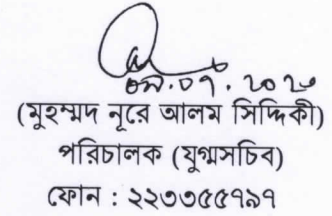 (মুহম্মদ নূরে আলম সিদ্দিকী)
পরিচালক (যুগ্মসচিব)
ফোন : ২২৩৩৫৫৭৯৭